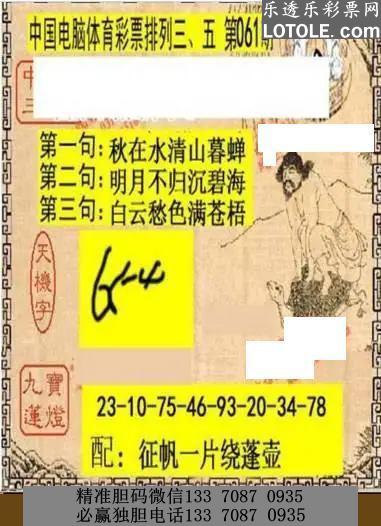 乐透乐彩票网
LOTOLE.COM
中国电脑体育彩票排列三、五 第061期
第一句:秋在水清山暮蝉
第二句:明月不归沉碧海
第三句:白云愁色满苍梧
天機字
九蓮寶燈
23-10-75-46-93-20-34-78
配:征帆一片绕蓬壶
精准胆码微信133 7087 0935
必赢独胆电话133 7087 0935